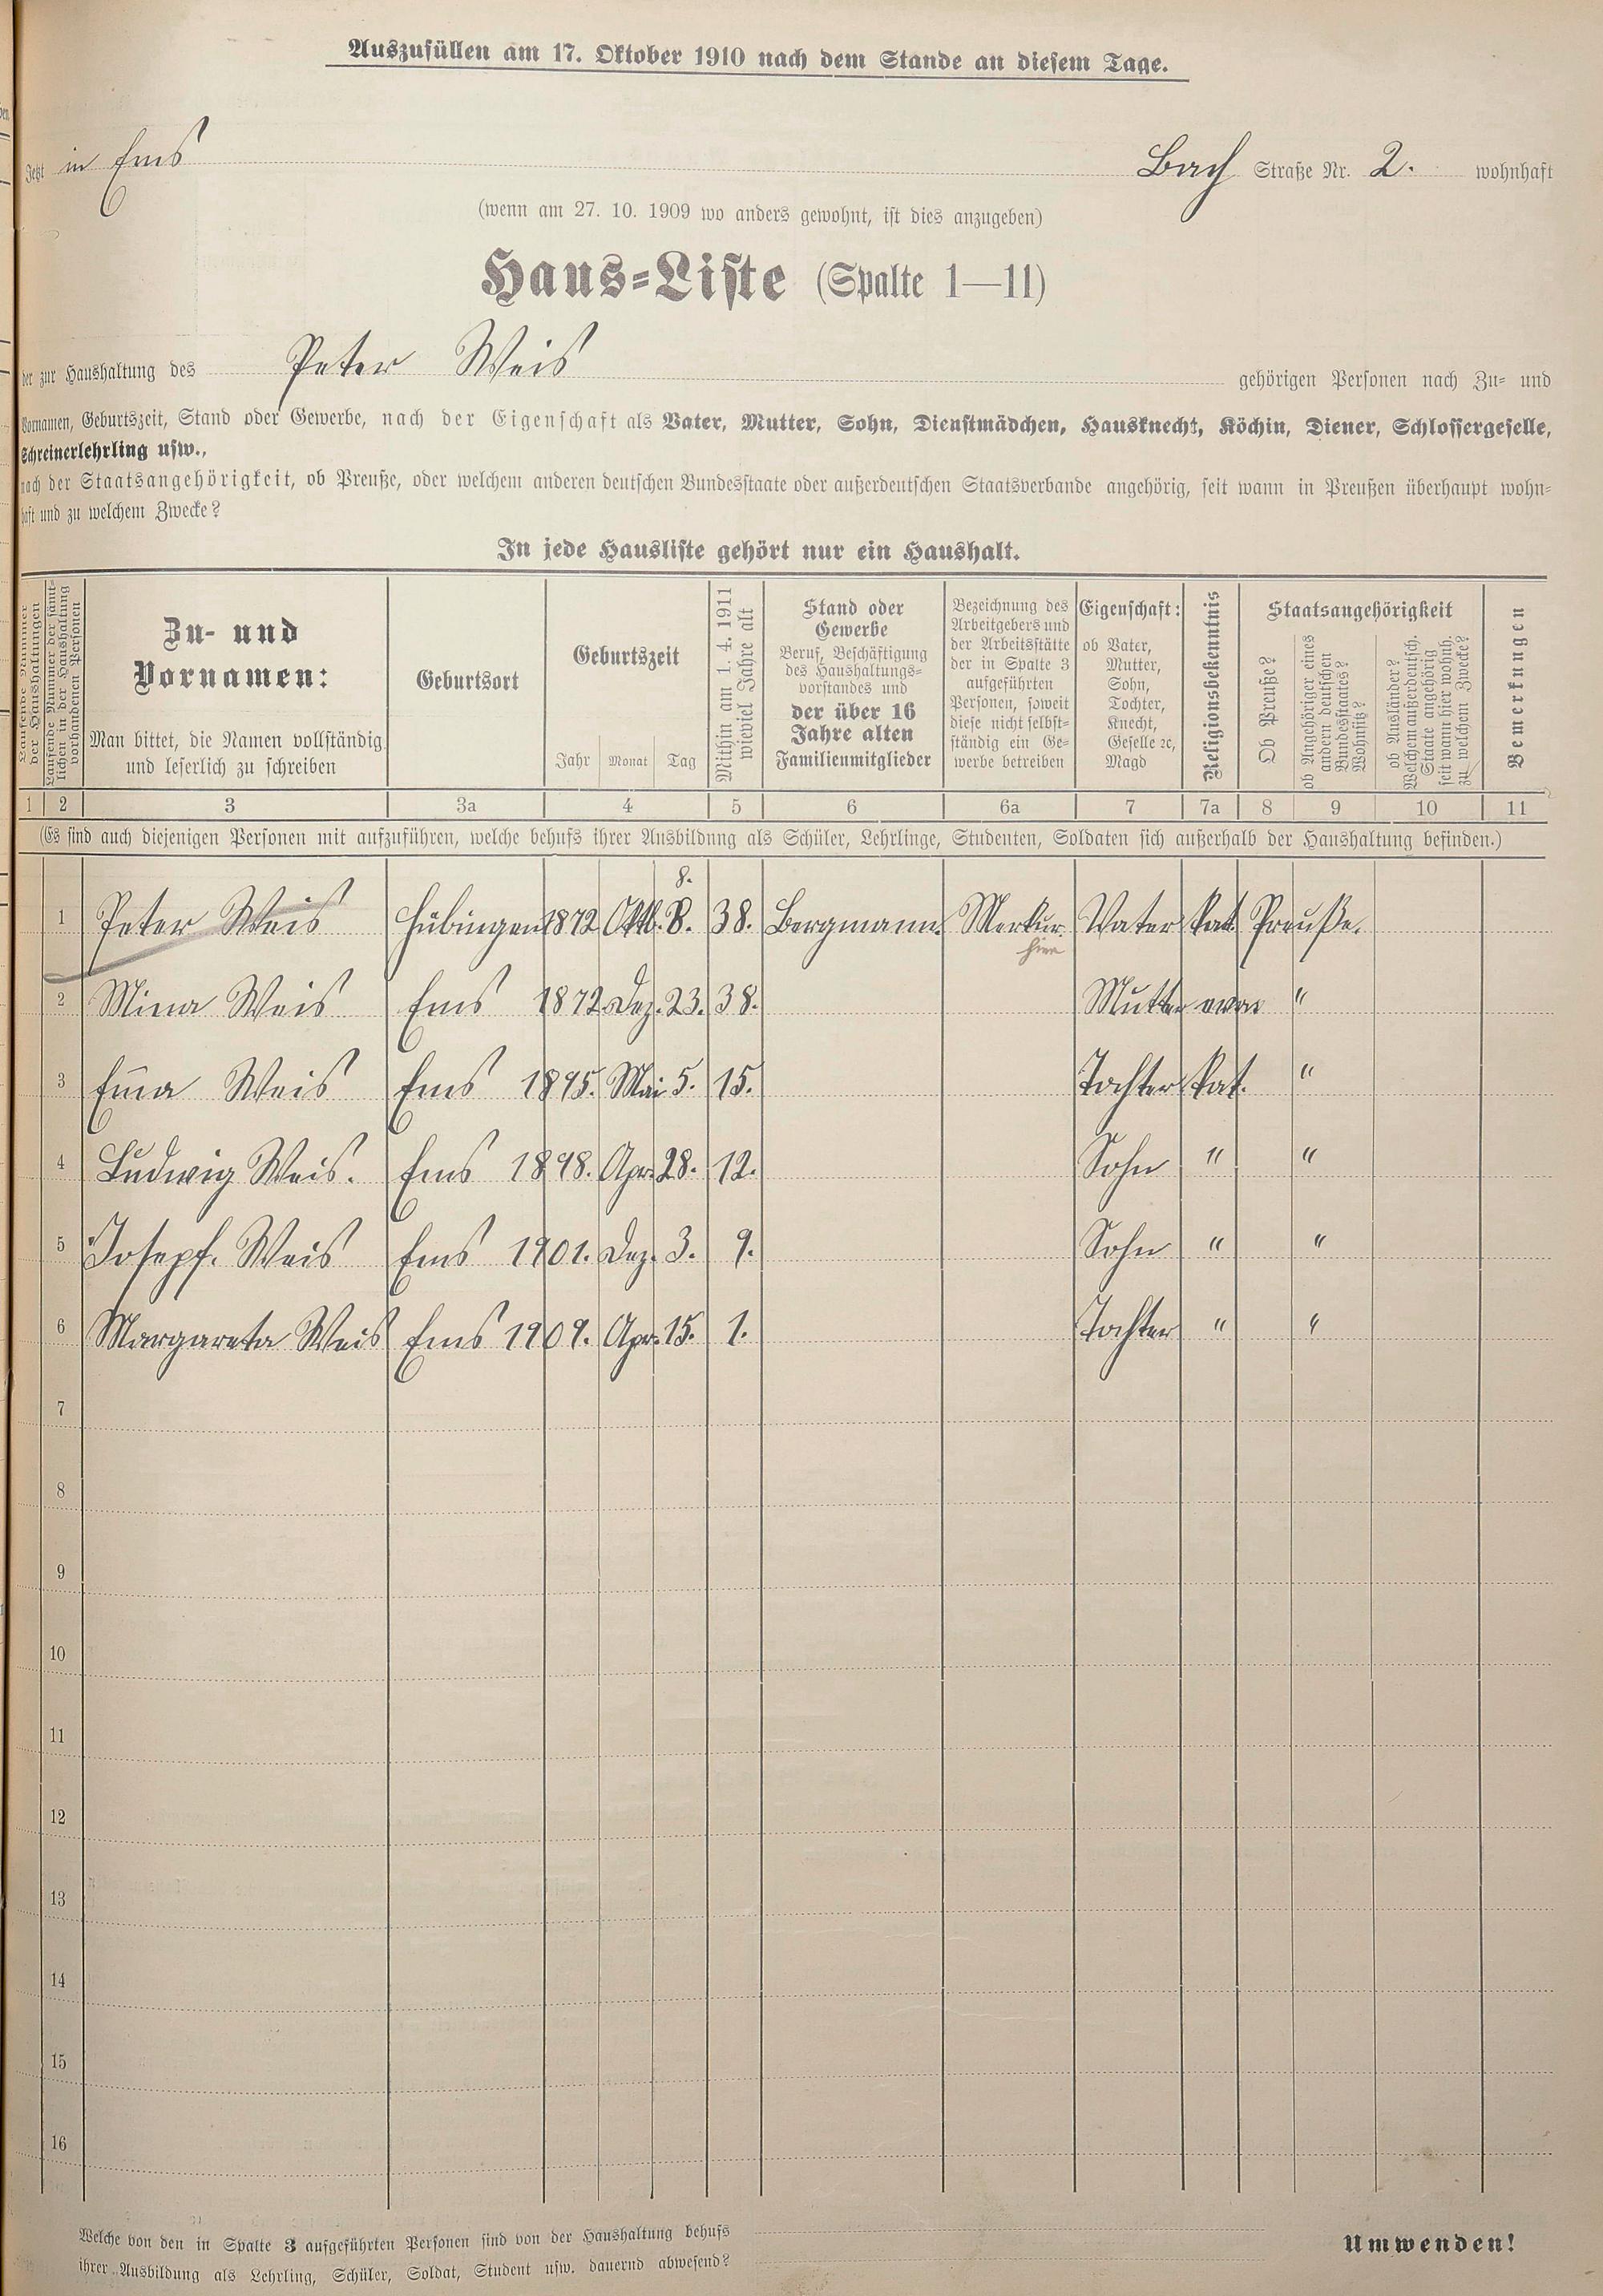 Auszufüllen am 17. Oktober 1910 nach dem Stande an diesem Tage.
Jetzt in Ems Bach Straße Nr. 2. wohnhaft
(wenn am 27. 10. 1909 wo anders gewohnt, ist dies anzugeben)
Haus-Liste (Spalte 1—11)
der zur Haushaltung des Peter Weis gehörigen Personen nach Zu- und
Vornamen, Geburtszeit, Stand oder Gewerbe, nach der Eigenschaft als Vater, Mutter, Sohn, Dienstmädchen, Hausknecht, Köchin, Diener, Schlossergeselle,
Schreinerlehrling usw.,
nach der Staatsangehörigkeit, ob Preuße, oder welchem anderen deutschen Bundesstaate oder außerdeutschen Staatsverbande angehörig, seit wann in Preußen überhaupt wohn-
haft und zu welchem Zwecke?
In jede Hausliste gehört nur ein Haushalt.
Laufende Nummer
der Haushaltungen
Laufende Nummer der sämt-
lichen in der Haushaltung
vorhandenen Personen
Zu- und
Vornamen:
Man bittet, die Namen vollständig
und leserlich zu schreiben
Geburtsort
Geburtszeit
Jahr Monat Tag
Mithin am 1. 4. 1911
wieviel Jahre alt
Stand oder
Gewerbe
Beruf, Beschäftigung
des Haushaltungs-
vorstandes und
der über 16
Jahre alten
Familienmitglieder
Bezeichnung des
Arbeitgebers und
der Arbeitsstätte
der in Spalte 3
aufgeführten
Personen, soweit
diese nicht selbst-
ständig ein Ge-
werbe betreiben
Eigenschaft:
ob Vater,
Mutter,
Sohn,
Tochter,
Knecht,
Geselle ec,
Magd
Religionsbekenntnis
Staatsangehörigkeit
Ob Preuße?
ob Angehöriger eines
andern deutschen
Bundesstaates?
Wohnsitz?
ob Ausländer?
Welchem außerdeutsch.
Staate angehörig
seit wann hier wohnh.
zu welchem Zwecke?
Bemerkungen
1 2 3 3a 4 5 6 6a 7 7a 8 9 10 11
(Es sind auch diejenigen Personen mit aufzuführen, welche behufs ihrer Ausbildung als Schüler, Lehrlinge, Studenten, Soldaten sich außerhalb der Haushaltung befinden.)
8.
1 Peter Weis Hübingen 1872 Oktb. 8. 38. Bergmann. Merkur. Vater kat. Preuße.
hier
2 Mina Weis Ems 1872 Dez. 23. 38. Mutter "
3 Em̄a Weis Ems 1895. Mai 5. 15. Tochter kat. "
4 Ludwig Weis. Ems 1898. Apr. 28. 12. Sohn " "
5 Josepf. Weis Ems 1901. Dez. 3. 9. Sohn " "
6 Margareta Weis Ems 1909. Apr. 15. 1. Tochter " "
7
8
9
10
11
12
13
14
15
16
Welche von den in Spalte 3 aufgeführten Personen sind von der Haushaltung behufs
ihrer Ausbildung als Lehrling, Schüler, Soldat, Student usw. dauernd abwesend?
Umwenden!